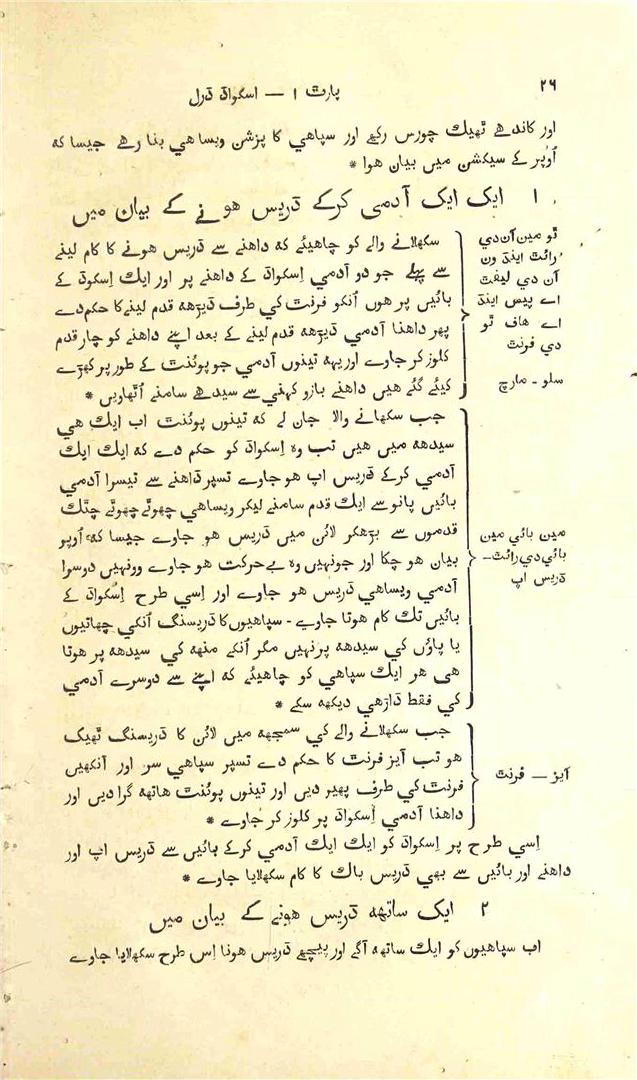 ۲۶
پارٹ ۱ — اسکواڈ ڈرل
اور کاندھے ٹھیك چورس رکھے اور سپاهي کا پزشن ویساهي بنا رھے جیسا که
اُوپر کے سیکشن میں بیان ھوا *
۱ ایك ایك آدمی کرکے ڈریس ھونے کے بیان میں
ٹو مین آن دي
رائٹ اینڈ ون
آن دي لیفٹ
اے پیس اینڈ
اے هاف ٹو
دي فرنٹ
سلو - مارچ
سکھلانے والے کو چاھیئے که داهنے سے ڈریس ھونے کا کام لینے
سے پہلے جو دو آدمي اِسکواڈ کے داهنے پر اور ایك اِسکوڈ کے
بائیں پر ھوں اُنکو فرنٹ کي طرف ڈیڑھه قدم لینے کا حکم دے
پھر داهنا آدمي ڈیڑھه قدم لینے کے بعد اپنے داهنے کو چار قدم
کلوز کر جاوے اور یہه تینوں آدمي جو پوئنٹ کے طور پر کھڑے
کیئے گئے ھیں داهنے بازو کہني سے سیدھے سامنے اُٹھاویں *
مین بائي مین
بائي دي رائٹ -
ڈریس اپ
جب سکھانے والا جان لے که تینوں پوئنٹ اب ایك ھي
سیدھه میں ھیں تب وہ اِسکواڈ کو حکم دے که ایك ایك
آدمي کرکے ڈریس اپ ھو جاوے تسپر داهنے سے تیسرا آدمي
بائیں پانو سے ایك قدم سامنے لیکر ویساهي چھوٹے چھوٹے چٹك
قدموں سے بڑھکر لائن میں ڈریس ھو جاوے جیسا که اُوپر
بیان ھو چکا اور جونہیں وہ بے حرکت ھو جاوے وونہیں دوسرا
آدمي ویساهي ڈریس ھو جاوے اور اِسي طرح اِسکواڈ کے
بائیں تك کام ھوتا جاوے - سپاهیوں کا ڈریسنگ اُنکي چھاتیوں
یا پاؤں کي سیدھه پر نہیں مگر اُنکے منھه کي سیدھه پر ھوتا
ھی ھر ایك سپاهي کو چاھیئے که اپنے سے دوسرے آدمي
کي فقط ڈاڑهي دیکھه سکے *
آیز — فرنٹ
جب سکھلانے والے کي سمجھه میں لائن کا ڈریسنگ ٹھیك
ھو تب آیز فرنٹ کا حکم دے تسپر سپاهي سر اور آنکھیں
فرنٹ کي طرف پھیر دیں اور تینوں پوئنٹ هاتھه گرا دیں اور
داهنا آدمي اِسکواڈ پر کلوز کر جاوے *
اِسي طرح پر اِسکواڈ کو ایك ایك آدمي کرکے بائیں سے ڈریس اپ اور
داهنے اور بائیں سے بھي ڈریس باك کا کام سکھلایا جاوے *
۲ ایك ساتھه ڈریس ھونے کے بیان میں
اب سپاهیوں کو ایك ساتھه آگے اور پیچھے ڈریس ھونا اِس طرح سکھلایا جاوے